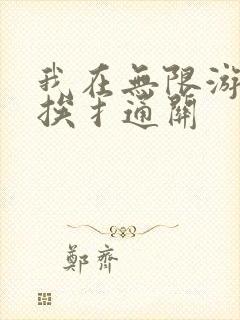 我在無限游
挨扌通關
鄭齊